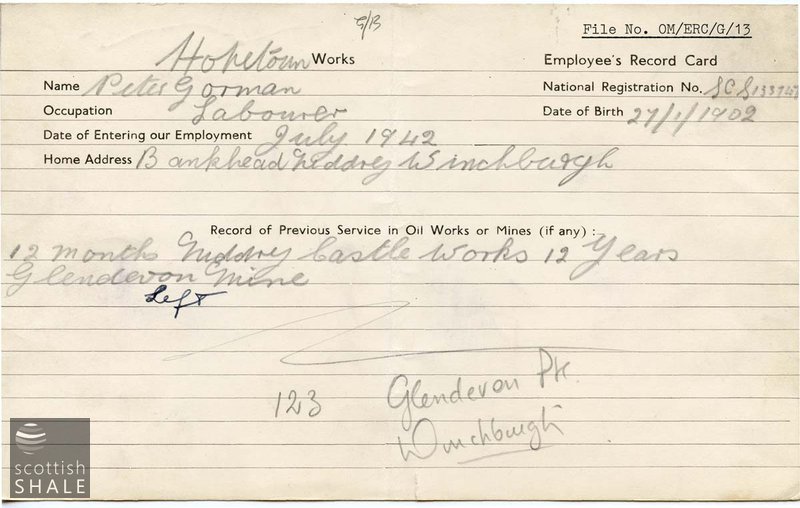 G/B
File No. OM/ERC/G/13
Hopetoun Works
Employee's Record Card
Name Peter Gorman
National Registration No. SCS
Occupation Labourer
Date of Birth 27/1/1902
Date of Entering our Employment July 1942
Home Address Bankhead Niddrey Winchburgh
Record of Previous Service in Oil Works or Mines (if any) :
12 months Niddry Castle Works 12 Years
Glendevon Mine
Left
123
Glendevon Pk.
Winchburgh
scottish
SHALE